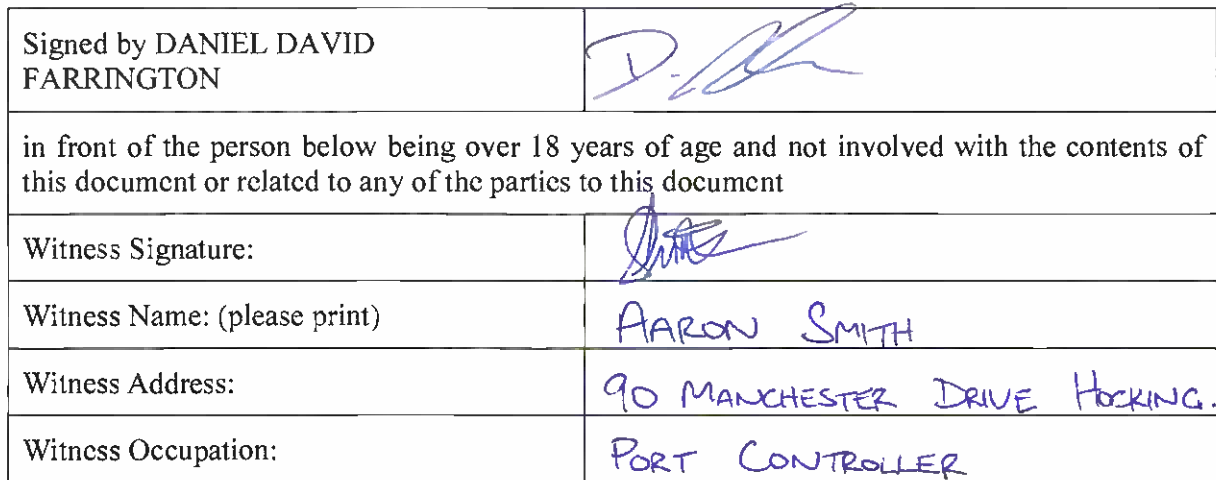 Signed by DANIEL DAVID
FARRINGTON
in front of the person below being over 18 years of age and not involved with the contents of
this document or related to any of the parties to this document
Witness Signature:
Witness Name: (please print) AARON SMITH
Witness Address: 90 MANCHESTER DRIVE HOCKING.
Witness Occupation: PORT CONTROLLER